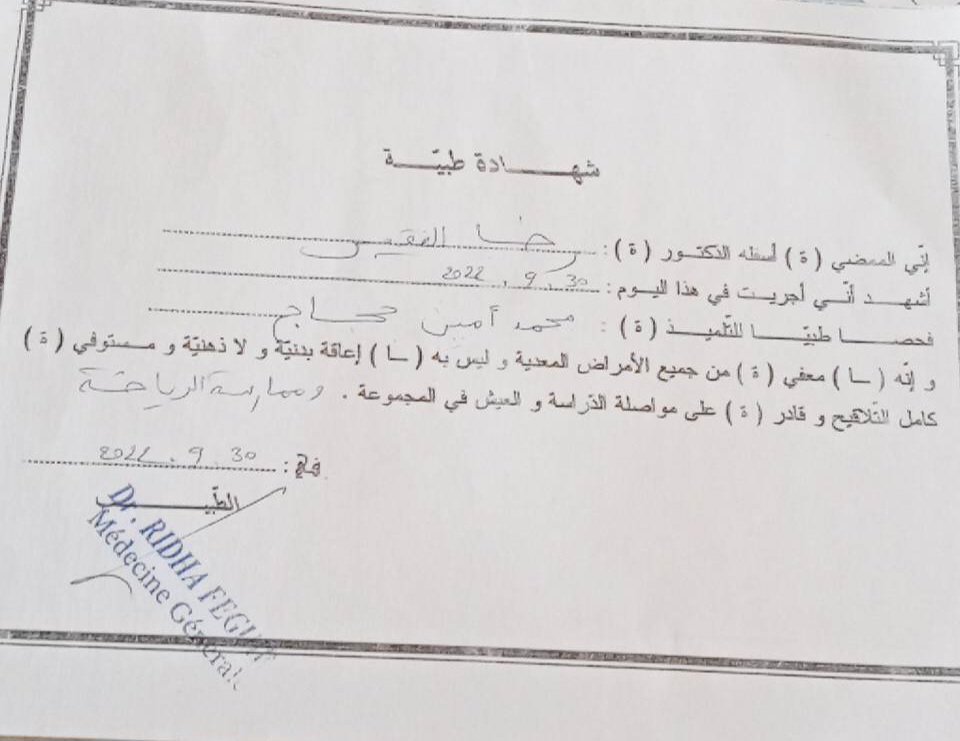 شهـــــــادة طبيّـــــة
إنّي الممضي ( ة ) أسفله الدكتـــور ( ة ) : رضا الفقيـ
أشهـــد أنّـــي أجريـــت في هذا اليـــوم : 30 . 9 . 2022
فحصـــــا طبيّـــــا للتلميـــذ ( ة ) : محمد أمين حجاج
و إنّه ( ـــا ) معفي ( ة ) من جميع الأمراض المعدية و ليس به ( ـــا ) إعاقة بدنيّة و لا ذهنيّة و مستوفي ( ة )
كامل التّلاقيح و قادر ( ة ) على مواصلة الدّراسة و العيش في المجموعة . وممارسة الرياضة
في : 30 . 9 . 2022
الطّبيـــــب
Dr. RIDHA
Médecine Générale